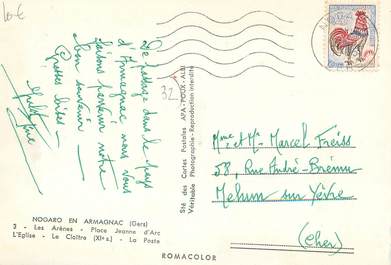 10€
De passage dans le pays
d'Armagnac nous vous
faisons parvenir notre
bon souvenir -
Grosses bises.
32
NOGARO EN ARMAGNAC (Gers)
3 - Les Arènes - Place Jeanne d'Arc
L'Eglise - Le Cloître (XIe s.) - La Poste
Sté des Cartes Postales APA-POUX - ALBI
Véritable Photographie - Reproduction interdite
ROMACOLOR
Mme et M. Marcel Freiss
58, Rue André-Brému
Mehun sur Yèvre
(Cher)